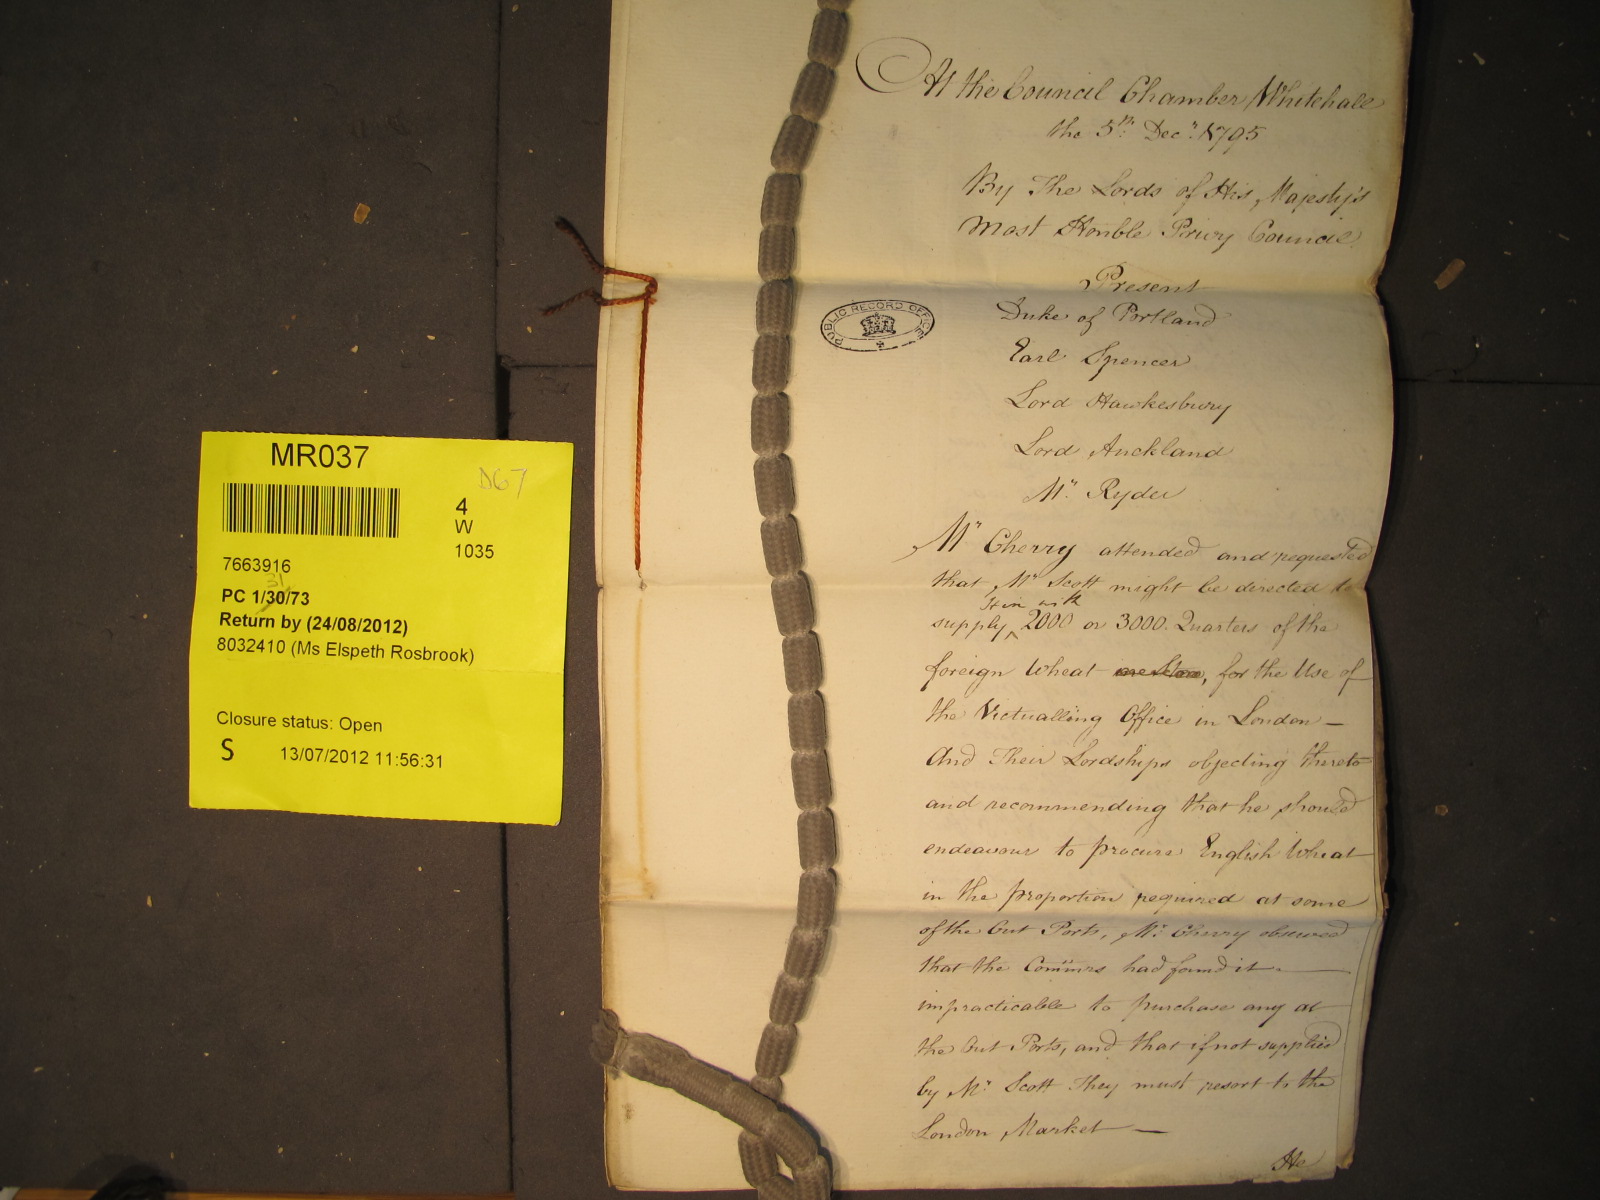 MR037
D67
4
W
1035
7663916
31
PC 1/30/73
Return by (24/08/2012)
8032410 (Ms Elspeth Rosbrook)
Closure status: Open
S 13/07/2012 11:56:31
PUBLIC RECORD OFFICE
At the Council Chamber Whitehall
the 5th. Decr. 1795
By The Lords of His Majesty's
Most Honble Privy Council
Present
Duke of Portland
Earl Spencer
Lord Hawkesbury
Lord Auckland
Mr. Ryder
Mr Cherry attended and requested
that Mr Scott might be directed to
him with
supply ^ 2000 or 3000 Quarters of the
foreign Wheat , for the Use of
the Victualling Office in London —
And Their Lordships objecting thereto
and recommending that he should
endeavour to procure English Wheat
in the proportion required at some
of the Out Ports, Mr. Cherry observed
that the Commrs had found it —
impracticable to purchase any at
the Out Ports, and that if not supplied
by Mr. Scott They must resort to the
London Market —
He